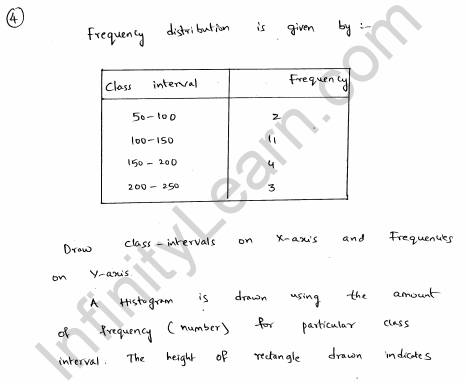 4
Frequency distribution is given by :-
Class interval Frequency
50-100 2
100-150 11
150-200 4
200-250 3
Draw class-intervals on X-axis and Frequencies
on Y-axis.
A Histogram is drawn using the amount
of frequency (number) for particular class
interval. The height of rectangle drawn indicates
InfinityLearn.com